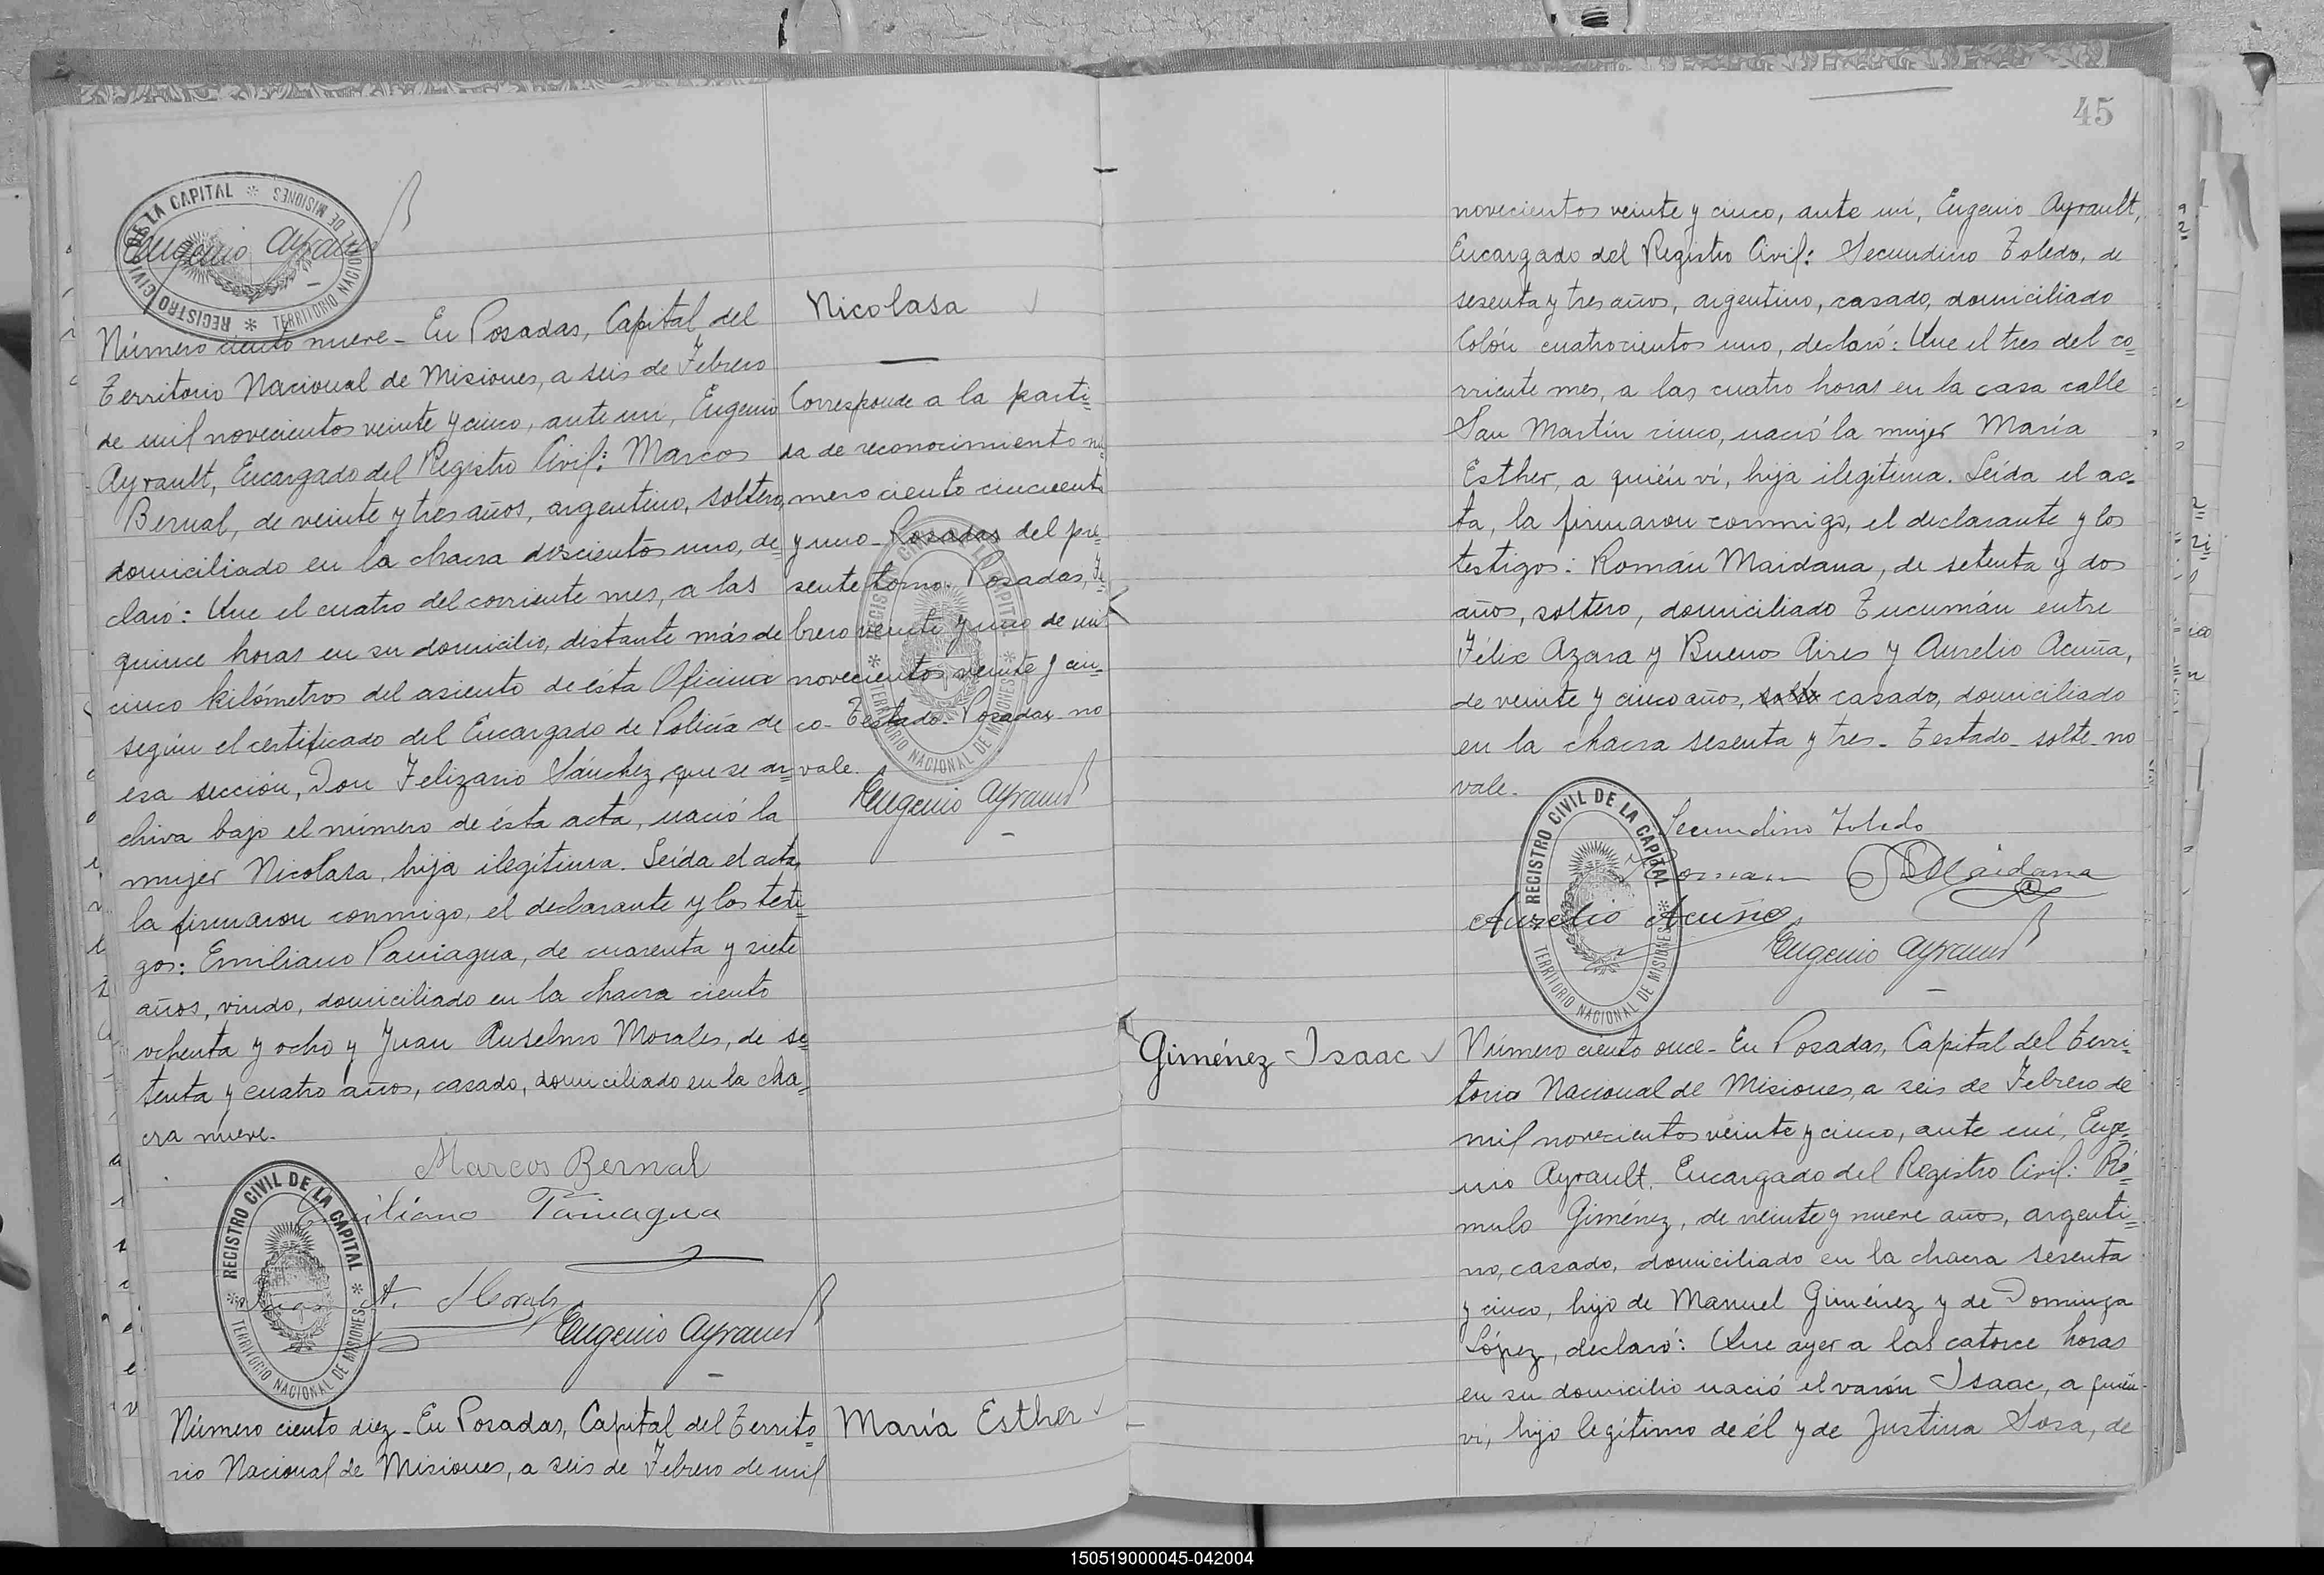 REGISTRO CIVIL DE LA CAPITAL * TERRITORIO NACIONAL DE MISIONES *
Eugenio Ayrault
Número ciento nueve - En Posadas, Capital del
Territorio Nacional de Misiones, a seis de Febrero
de mil novecientos veinte y cinco, ante mí, Eugenio
Ayrault, Encargado del Registro Civil: Marcos
Bernal, de veinte y tres años, argentino, soltero,
domiciliado en la chacra doscientos uno, de=
claró: Que el cuatro del corriente mes, a las
quince horas en su domicilio, distante más de
cinco kilómetros del asiento de ésta Oficina
según el certificado del Encargado de Policía de
esa sección, Don Felizario Sánchez, que se ar=
chiva bajo el número de ésta acta, nació la
mujer Nicolasa, hija ilegítima. Leída el acta,
la firmaron conmigo, el declarante y los testi=
gos: Emiliano Paniagua, de cuarenta y siete
años, viudo, domiciliado en la chacra ciento
ochenta y ocho y Juan Anselmo Morales, de se=
tenta y cuatro años, casado, domiciliado en la cha=
cra nueve.
Marcos Bernal
Emiliano Paniagua
Juan A. Morales
Eugenio Ayrault
REGISTRO CIVIL DE LA CAPITAL * TERRITORIO NACIONAL DE MISIONES *
Número ciento diez - En Posadas, Capital del Territo=
rio Nacional de Misiones, a seis de Febrero de mil
Nicolasa
Corresponde a la parti=
da de reconocimiento nú=
mero ciento cincuenta
y uno - Posadas del pre=
sente tomo. Posadas, Fe=
brero veinte y uno de mil
novecientos veinte y cin=
co - Testado - Posadas - no
vale.
REGISTRO CIVIL DE LA CAPITAL * TERRITORIO NACIONAL DE MISIONES *
Eugenio Ayrault
María Esther
45
novecientos veinte y cinco, ante mí, Eugenio Ayrault,
Encargado del Registro Civil: Secundino Toledo, de
sesenta y tres años, argentino, casado, domiciliado
Colón cuatrocientos uno, declaró: Que el tres del co=
rriente mes, a las cuatro horas en la casa calle
San Martín cinco, nació la mujer María
Esther, a quién ví, hija ilegítima. Leída el ac=
ta, la firmaron conmigo, el declarante y los
testigos: Román Maidana, de setenta y dos
años, soltero, domiciliado Tucumán entre
Félix Azara y Buenos Aires y Aurelio Acuña,
de veinte y cinco años, solte casado, domiciliado
en la chacra sesenta y tres - Testado - solte - no
vale.
REGISTRO CIVIL DE LA CAPITAL * TERRITORIO NACIONAL DE MISIONES *
Secundino Toledo
Roman Maidana
Aurelio Acuña
Eugenio Ayrault
Giménez Isaac
Número ciento once - En Posadas, Capital del Terri=
torio Nacional de Misiones, a seis de Febrero de
mil novecientos veinte y cinco, ante mí, Euge=
nio Ayrault, Encargado del Registro Civil: Ró=
mulo Giménez, de veinte y nueve años, argenti=
no, casado, domiciliado en la chacra sesenta
y cinco, hijo de Manuel Giménez y de Dominga
López, declaró: Que ayer a las catorce horas
en su domicilio nació el varón Isaac, a quién
ví, hijo legítimo de él y de Justina Sosa, de
150519000045-042004